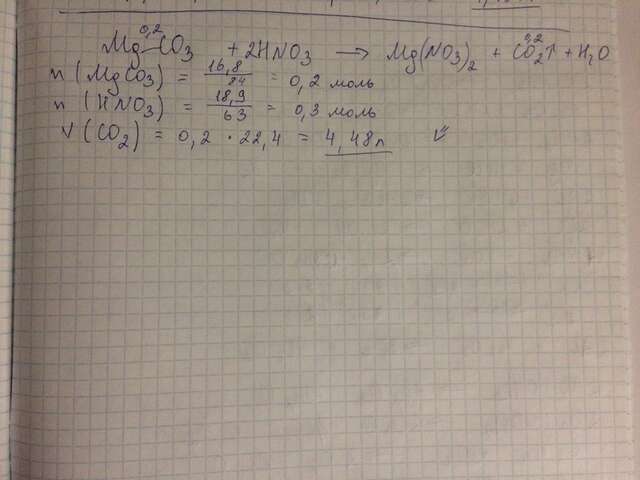 0,2 0,2
MgCO3 + 2HNO3 → Mg(NO3)2 + CO2↑ + H2O
n (MgCO3) = 16,8/84 = 0,2 моль
n (HNO3) = 18,9/63 = 0,3 моль
V (CO2) = 0,2 · 22,4 = 4,48л